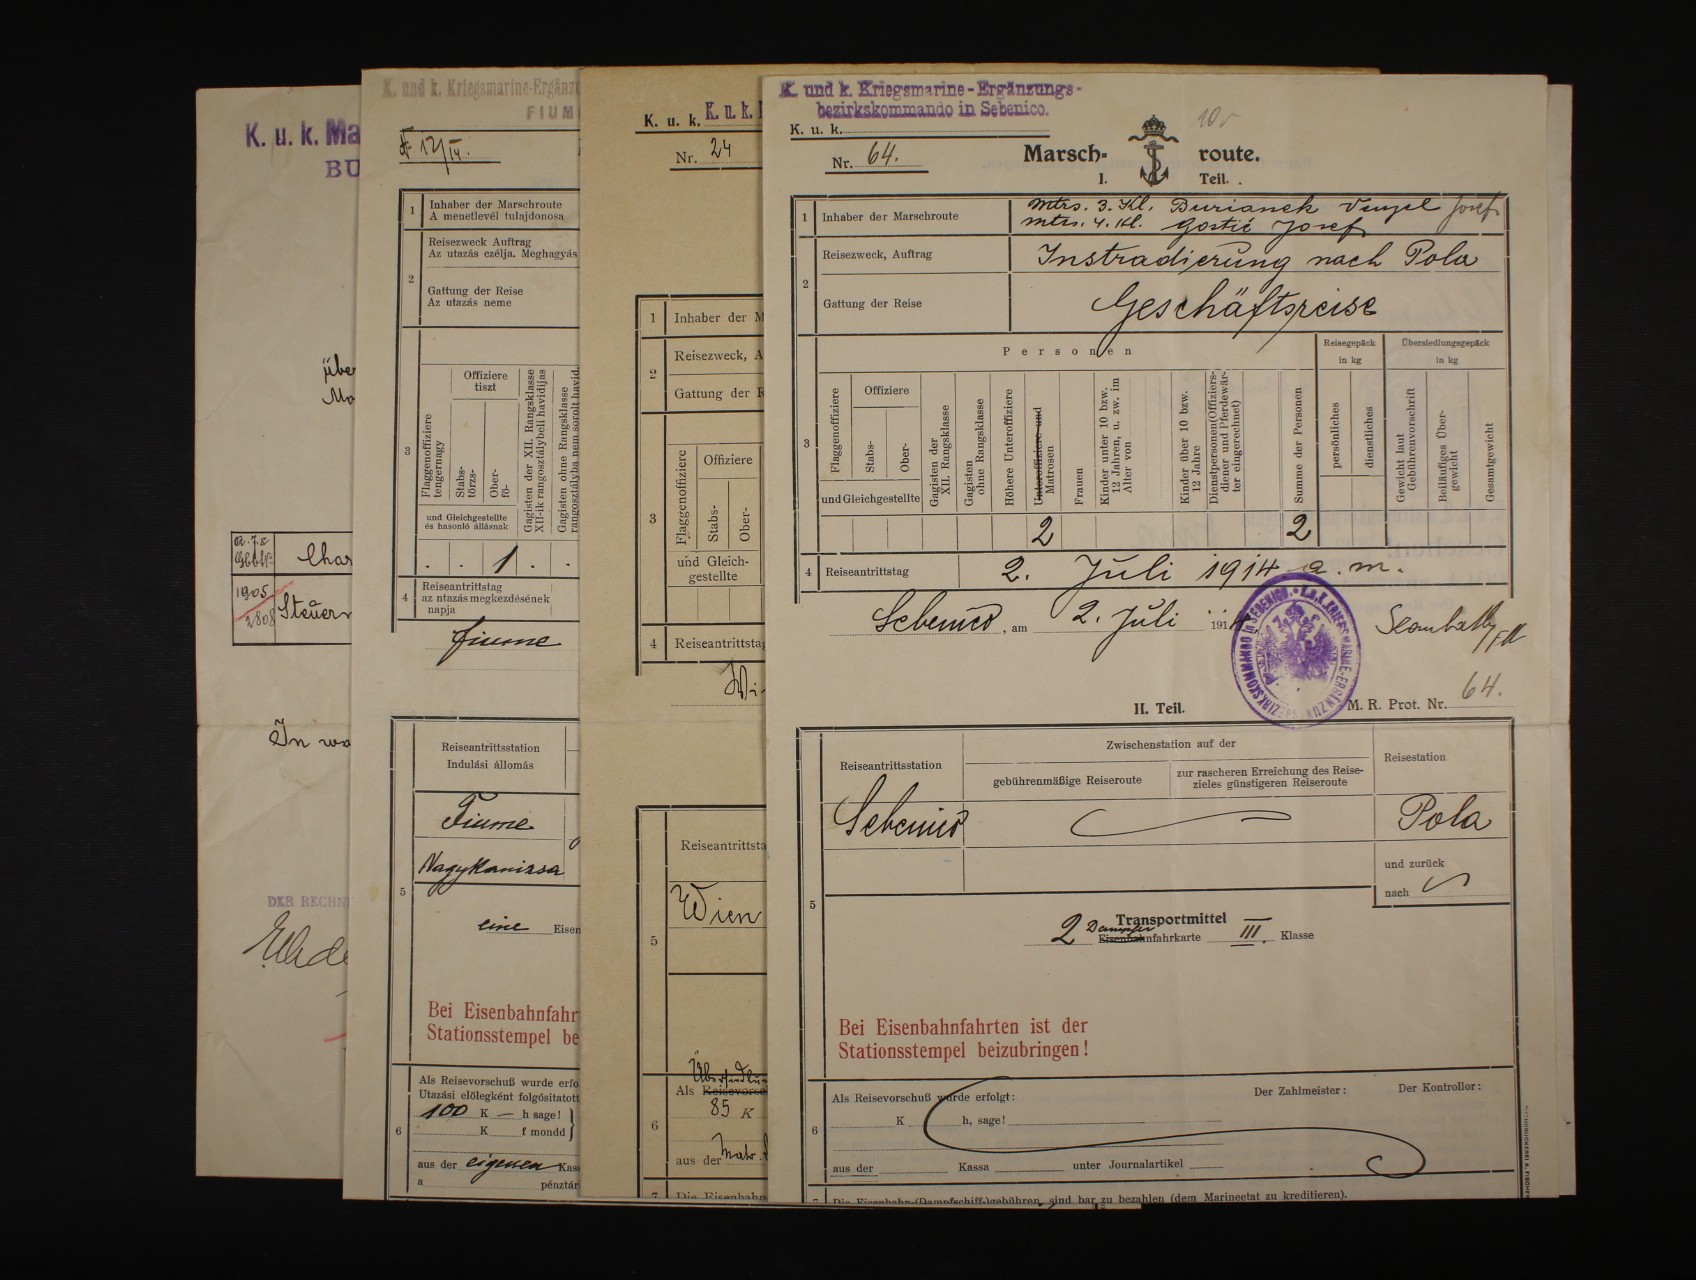 K. u. k. Ma
BU
übe
Ma
Char
1905
2808
Steuer
In wa
DER RECHN
K. und k. Kriegsmarine-Ergänzu
FIUM
12/IV.
1 Inhaber der Marschroute
A menetlevél tulajdonosa
Reisezweck Auftrag
Az utazás czélja. Meghagyás
2
Gattung der Reise
Az utazás neme
3
Offiziere
tiszt
Flaggenoffiziere
tengernagy
Stabs-
törzs-
Ober-
fő-
Gagisten der XII. Rangsklasse
XII-ik rangosztálybeli havidíjas
Gagisten ohne Rangsklasse
rangosztályba nem sorolt havid.
und Gleichgestellte
és hasonló állásnak
. . 1 . .
Reiseantrittstag
4 az ntazás megkezdésének
napja
Fiume
Reiseantrittsstation
Indulási állomás
Fiume
Nagykanizsa
5
eine Eisen
Bei Eisenbahnfahr
Stationsstempel be
Als Reisevorschuß wurde erfo
Utazási előlegként folgósitatott
100 K — h sage!
6 K f mondd
aus der eigenen Kass
a pénztár
K. u. k. K. u. k.
Nr. 24
1 Inhaber der M
Reisezweck, A
2
Gattung der R
3
Offiziere
Flaggenoffiziere
Stabs-
Ober-
und Gleich-
gestellte
4 Reiseantrittstag
Wi
Reiseantrittsta
Wien
5
Übersiedlun
Als Reisevorsc
85 K
6
aus der Matr.
7 Die Eisenbahn
K. und k. Kriegsmarine-Ergänzungs-
bezirkskommando in Sebenico.
K. u. k.
Nr. 64.
Marsch- route.
I. Teil.
1 Inhaber der Marschroute
Mtrs. 3. Kl. Burianek Josef
Mtrs. 4. Kl. Gostić Josef
Reisezweck, Auftrag Instradierung nach Pola
2
Gattung der Reise Geschäftsreise
3
Personen
Reisegepäck
in kg
Übersiedlungsgepäck
in kg
Offiziere
Flaggenoffiziere
Stabs-
Ober-
und Gleichgestellte
Gagisten der
XII. Rangsklasse
Gagisten
ohne Rangsklasse
Höhere Unteroffiziere
Unteroffiziere und
Matrosen
Frauen
Kinder unter 10 bzw.
12 Jahren, u. zw. im
Alter von
Kinder über 10 bzw.
12 Jahre
Dienstpersonen (Offiziers-
diener und Pferdewär-
ter eingerechnet)
Summe der Personen
persönliches
dienstliches
Gewicht laut
Gebührenvorschrift
Beiläufiges Über-
gewicht
Gesamtgewicht
2 2
4 Reiseantrittstag 2. Juli 1914 a. m.
Sebenico, am 2. Juli 1914
K.u.K. KRIEGSMARINE-ERGÄNZUNGSBEZIRKSKOMMANDO in SEBENICO.
M. R. Prot. Nr. 64.
II. Teil.
Reiseantrittsstation
Zwischenstation auf der
gebührenmäßige Reiseroute
zur rascheren Erreichung des Reise-
zieles günstigeren Reiseroute
Reisestation
Sebenico Pola
und zurück
nach
5
Transportmittel
Dampfer
2 Eisenbahnfahrkarte III. Klasse
Bei Eisenbahnfahrten ist der
Stationsstempel beizubringen!
Als Reisevorschuß wurde erfolgt: Der Zahlmeister: Der Kontrollor:
K h, sage!
6
aus der Kassa unter Journalartikel
7 Die Eisenbahn-(Dampfschiff-)gebühren sind bar zu bezahlen (dem Marineetat zu kreditieren).